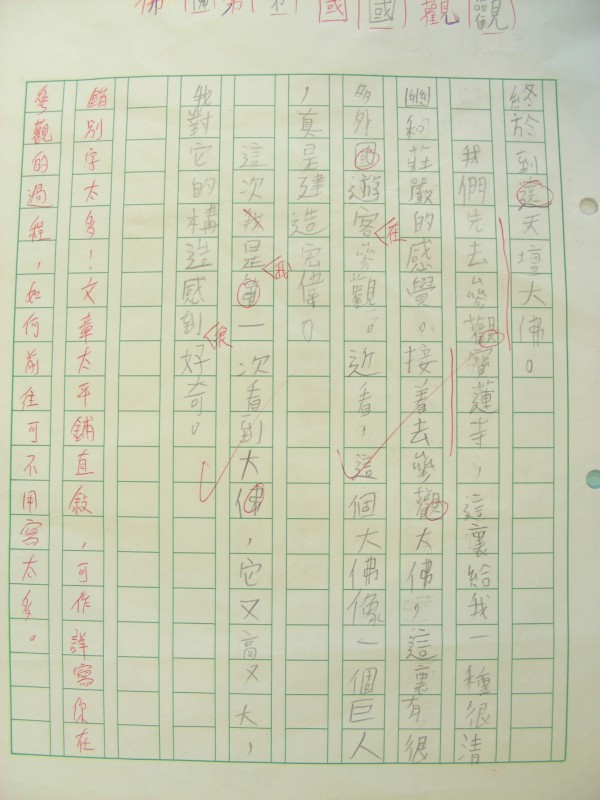 終於到達天壇大佛。
我們先去參觀寶蓮寺，這裏給我一種很清
幽和莊嚴的感覺。接着去參觀大佛，這裏有很
多外國遊客在參觀。近看，這個大佛像一個巨人
，真是建造宏偉。
這次我是我第一次看到大佛，它又高又大，
我對它的構造感到很好奇。
錯別字太多！文章太平鋪直敘，可作詳寫你在
參觀的過程，如何前往可不用寫太多。
國國觀觀